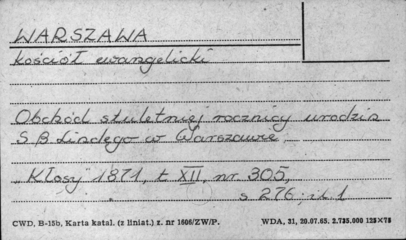 WARSZAWA
kościół ewangelicki
Obchód stuletniej rocznicy urodzin
S.B. Lindego w Warszawie
"Kłosy" 1871, t. XII, nr 305,
s. 276; il. 1
CWD, B-15b, Karta katal. (z liniat.) z. nr 1606/ZW/P. WDA, 31, 20.07.63. 2.735.000 125×75